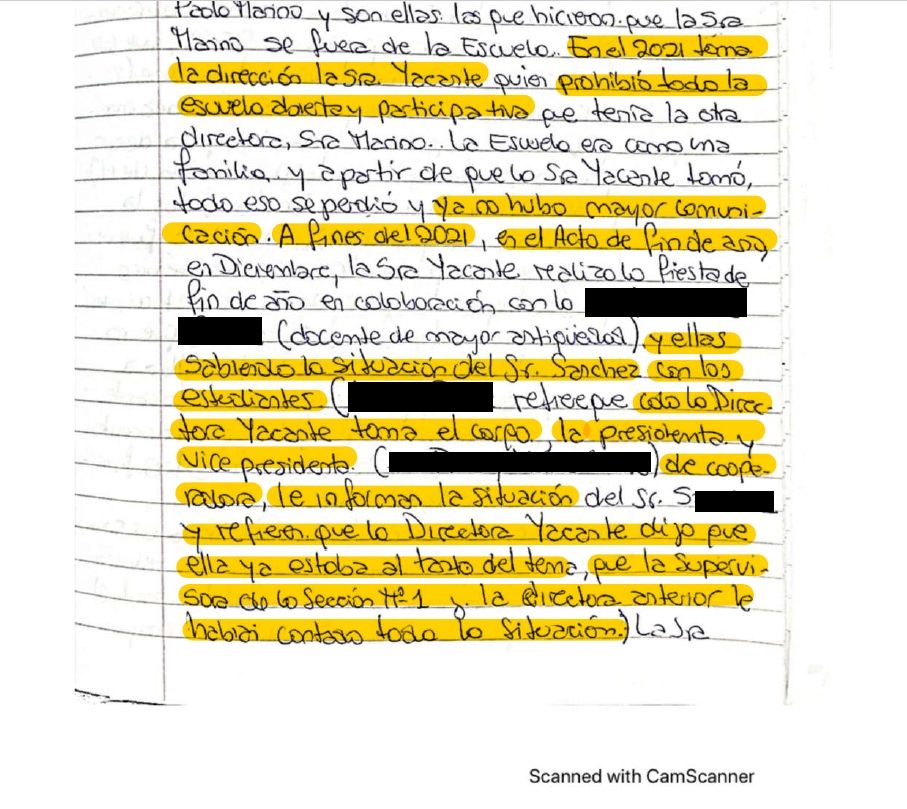 Paolo Marino y son ellas las que hicieron que la Sra
Marino se fuera de la Escuela. En el 2021 toma
la dirección la Sra Yacante quien prohibió todo la
escuela abierta y participativa que tenía la otra
directora, Sra Marino. La Escuela era como una
familia y a partir de que la Sra Yacante tomó,
todo eso se perdió y ya no hubo mayor comuni-
cación. A fines del 2021, en el Acto de fin de año,
en Diciembre, la Sra Yacante realizo la fiesta de
fin de año en colaboración con la
(docente de mayor antigüedad) y ellas
sabiendo la situación del Sr. Sanchez con los
estudiantes (refiere que cdo la Direc-
tora Yacante toma el cargo, la presidenta y
vice presidenta. ( ) de coope-
radora, le informan la situación del Sr. S
y refieren que la Directora Yacante dijo que
ella ya estaba al tanto del tema, que la Supervi-
sora de la Sección Nº 1 y la directora anterior le
habían contado toda la situación.) La Sra
Scanned with CamScanner